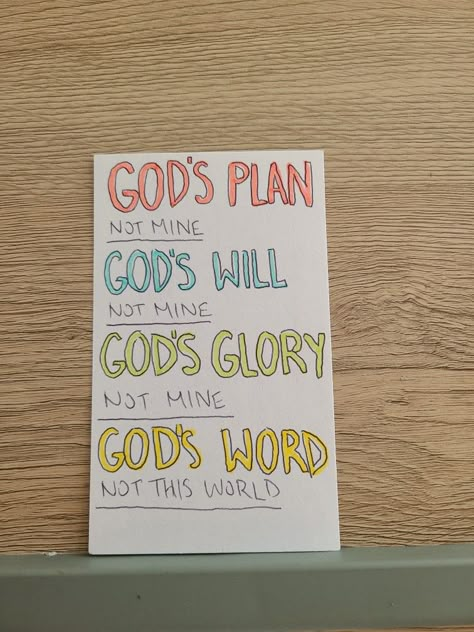 GOD'S PLAN
NOT MINE
GOD'S WILL
NOT MINE
GOD'S GLORY
NOT MINE
GOD'S WORD
NOT THIS WORLD